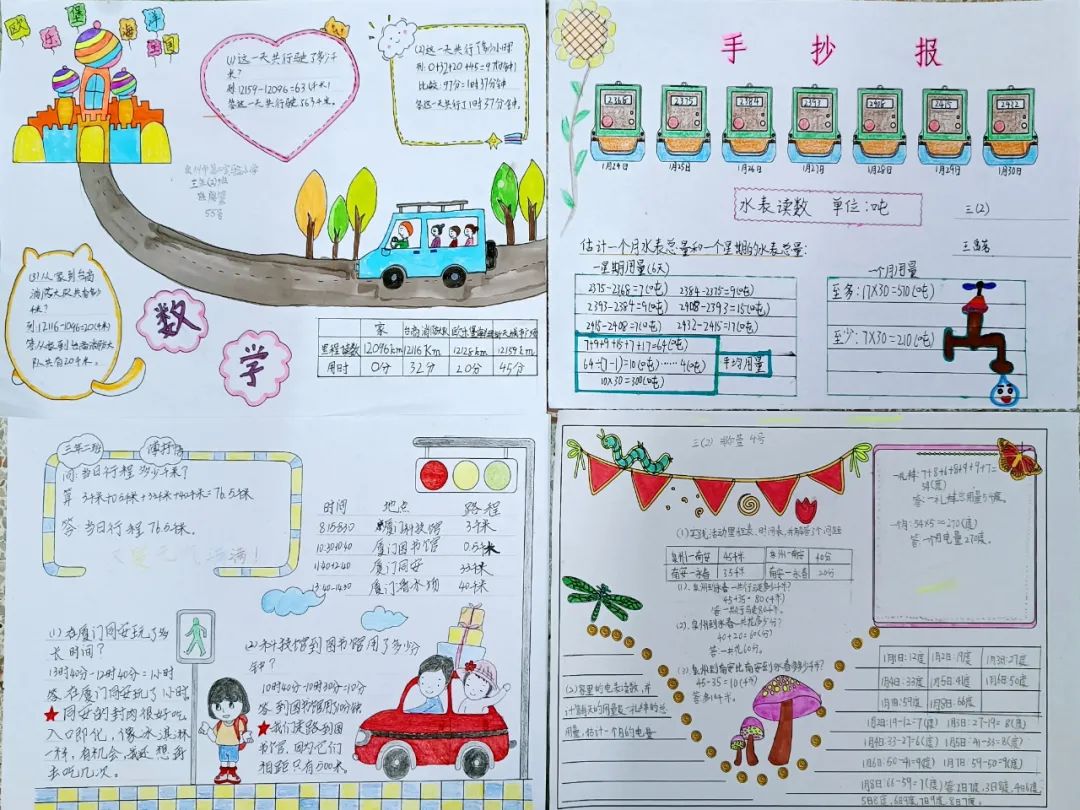 欧乐堡海洋王国
(1)这一天共行驶了多少千米?
列:12159-12096=63(千米)
答:这一天共行驶了63千米.
(2)这一天共行了多少小时
列:0+32+20+45=97(分钟)
比较:97分=1时37分钟
答:这一天共行了1时37分钟.
三年(2)班
55号
(3)从家到台商
千米?
列:12116-12096=20(千米)
队共有20千米.
数
学
家
里程读数 12096km 12116Km 12128km 12159km
用时 0分 32分 20分 45分
手抄报
2368 2375 2384 2393 2408 2415 2432
1月24日 1月25日 1月26日 1月27日 1月28日 1月29日 1月30日
水表读数 单位:吨
三(2)
估计一个月水表总量和一个星期的水表总量:
一星期用量(6天)
2375-2368=7(吨) 2384-2375=9(吨)
2393-2384=9(吨) 2408-2393=15(吨)
2415-2408=7(吨) 2432-2415=17(吨)
7+9+9+15+7+17=64(吨)
64÷(7-1)=10(吨)……4(吨)
10×30=300(吨)
平均用量
一个月用量
至多:17×30=510(吨)
至少:7×30=210(吨)
三年二班
问:当日行程多少千米?
算:3千米+0.5千米+33千米+40千米=76.5千米
答:当日行程76.5千米.
时间 地点 路程
8:15-8:30 厦门科技馆 3千米
10:30-10:40 厦门图书馆 0.5千米
11:40-12:40 厦门同安 33千米
13:40-14:30 40千米
(1)在厦门同安玩了多
长时间?
13时40分-12时40分=1小时
答:在厦门同安玩了1小时
★同安的封肉很好吃
入口即化,像冰淇淋
一样,有机会,我还想再
去吃几次.
(2)科技馆到图书馆用了多少分
钟?
10时40分-10时30分=10分
答:到图书馆用10分钟
★我们徒步到图
书馆,因为它们
相距只有500米.
三(2) 4号
(1)实践活动里程表、时间表,并解答3个问题
泉州—南安 45千米 泉州—南安 40分
南安—永春 35千米 南安—永春 20分
(1).泉州到永春一共行驶多少千米?
45+35=80(千米)
答:一共行驶80千米.
(2).泉州到永春一共花多少分?
40+20=60(分)
答:一共花60分.
45-35=10(千米)
答:多10千米.
(2)家里的电表读数,并
计算每天的用量及一礼拜的总
用量,估计一个月的电量
一礼拜:7+8+6+8+9+9+7=
54(度)
答:一礼拜总用量54度.
一个月:54×5=270(度)
答:一个月电量270度.
1月1日:12度 1月2日:19度 1月3日:27度
1月4日:33度 1月5日:41度 1月6日:50度
1月7日:59度 1月8日:66度
1月2日:19-12=7(度) 1月3日:27-19=8(度)
1月4日:33-27=6(度) 1月5日:41-33=8(度)
1月6日:50-41=9(度) 1月7日:59-50=9(度)
1月8日:66-59=7(度) 答:2日7度,3日8度,4日6度
5日8度,6日9度,7日9度,8日7度.